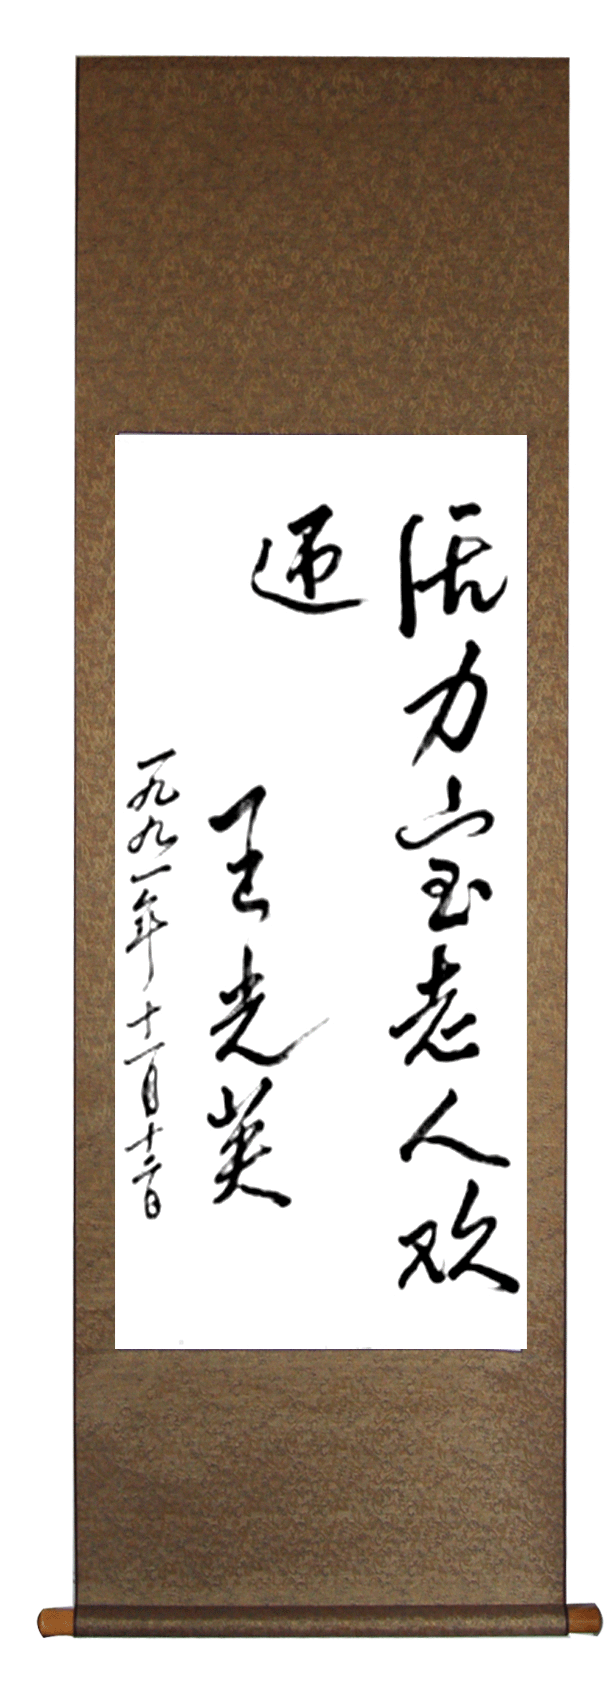 活力宝老人欢
迎
王光英
一九九一年十一月十二日